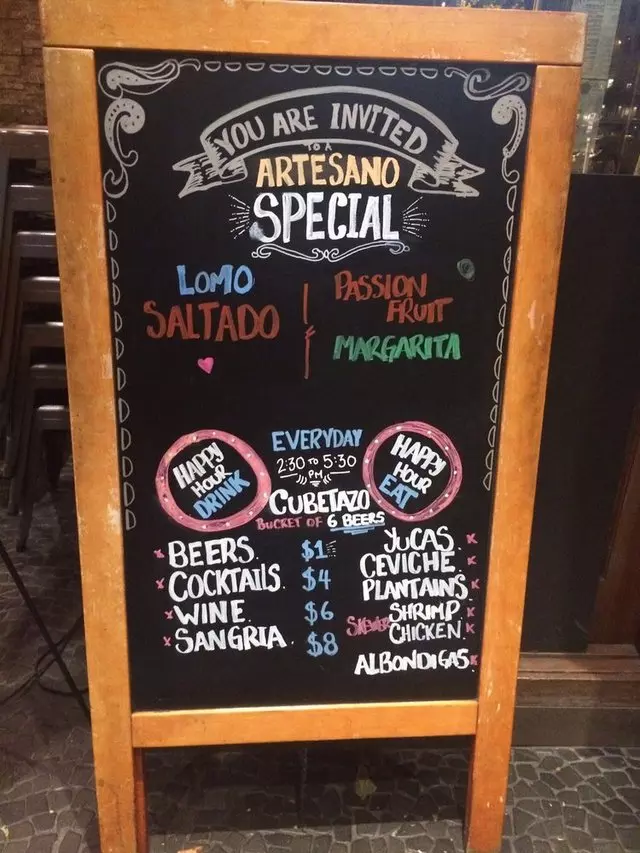 YOU ARE INVITED
TO A
ARTESANO
SPECIAL
LOMO
SALTADO
PASSION
FRUIT
MARGARITA
HAPPY
HOUR
DRINK
EVERYDAY
2:30 TO 5:30
PM
CUBETAZO
BUCKET OF 6 BEERS
HAPPY
HOUR
EAT
BEERS. $1
COCKTAILS. $4
WINE. $6
SANGRIA. $8
YUCAS
CEVICHE
PLANTAINS
SKEWER SHRIMP
CHICKEN
ALBONDIGAS